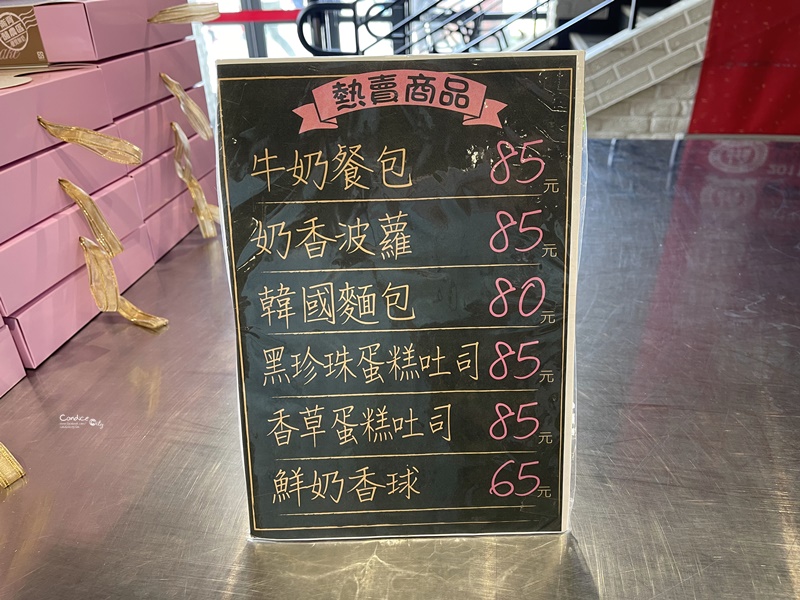 熱賣商品
牛奶餐包 85元
奶香波蘿 85元
韓國麵包 80元
黑珍珠蛋糕吐司 85元
香草蛋糕吐司 85元
鮮奶香球 65元
Candice